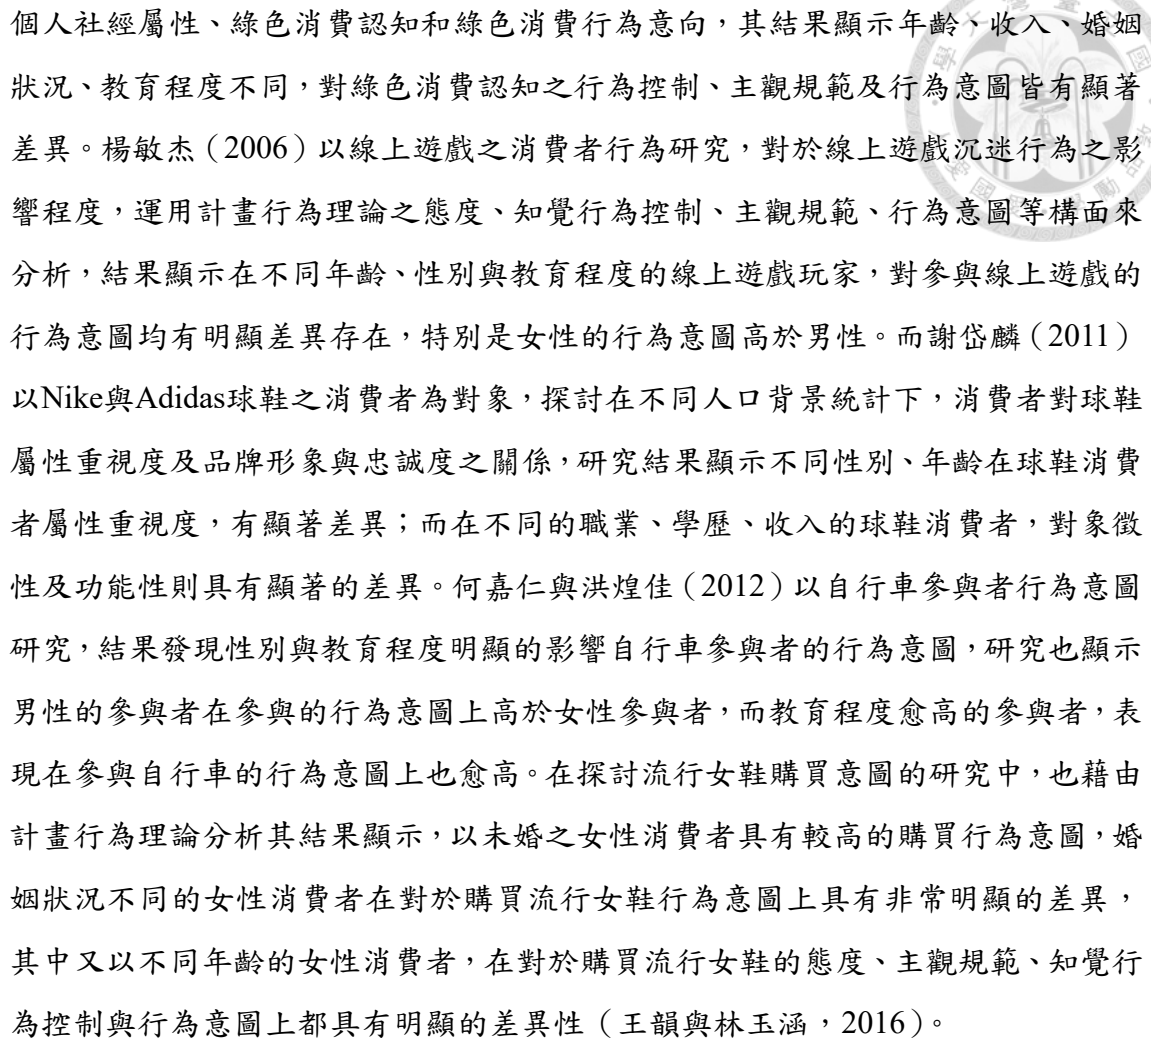 個人社經屬性、綠色消費認知和綠色消費行為意向，其結果顯示年齡、收入、婚姻
狀況、教育程度不同，對綠色消費認知之行為控制、主觀規範及行為意圖皆有顯著
差異。楊敏杰（2006）以線上遊戲之消費者行為研究，對於線上遊戲沉迷行為之影
響程度，運用計畫行為理論之態度、知覺行為控制、主觀規範、行為意圖等構面來
分析，結果顯示在不同年齡、性別與教育程度的線上遊戲玩家，對參與線上遊戲的
行為意圖均有明顯差異存在，特別是女性的行為意圖高於男性。而謝岱麟（2011）
以Nike與Adidas球鞋之消費者為對象，探討在不同人口背景統計下，消費者對球鞋
屬性重視度及品牌形象與忠誠度之關係，研究結果顯示不同性別、年齡在球鞋消費
者屬性重視度，有顯著差異；而在不同的職業、學歷、收入的球鞋消費者，對象徵
性及功能性則具有顯著的差異。何嘉仁與洪煌佳（2012）以自行車參與者行為意圖
研究，結果發現性別與教育程度明顯的影響自行車參與者的行為意圖，研究也顯示
男性的參與者在參與的行為意圖上高於女性參與者，而教育程度愈高的參與者，表
現在參與自行車的行為意圖上也愈高。在探討流行女鞋購買意圖的研究中，也藉由
計畫行為理論分析其結果顯示，以未婚之女性消費者具有較高的購買行為意圖，婚
姻狀況不同的女性消費者在對於購買流行女鞋行為意圖上具有非常明顯的差異，
其中又以不同年齡的女性消費者，在對於購買流行女鞋的態度、主觀規範、知覺行
為控制與行為意圖上都具有明顯的差異性（王韻與林玉涵，2016）。